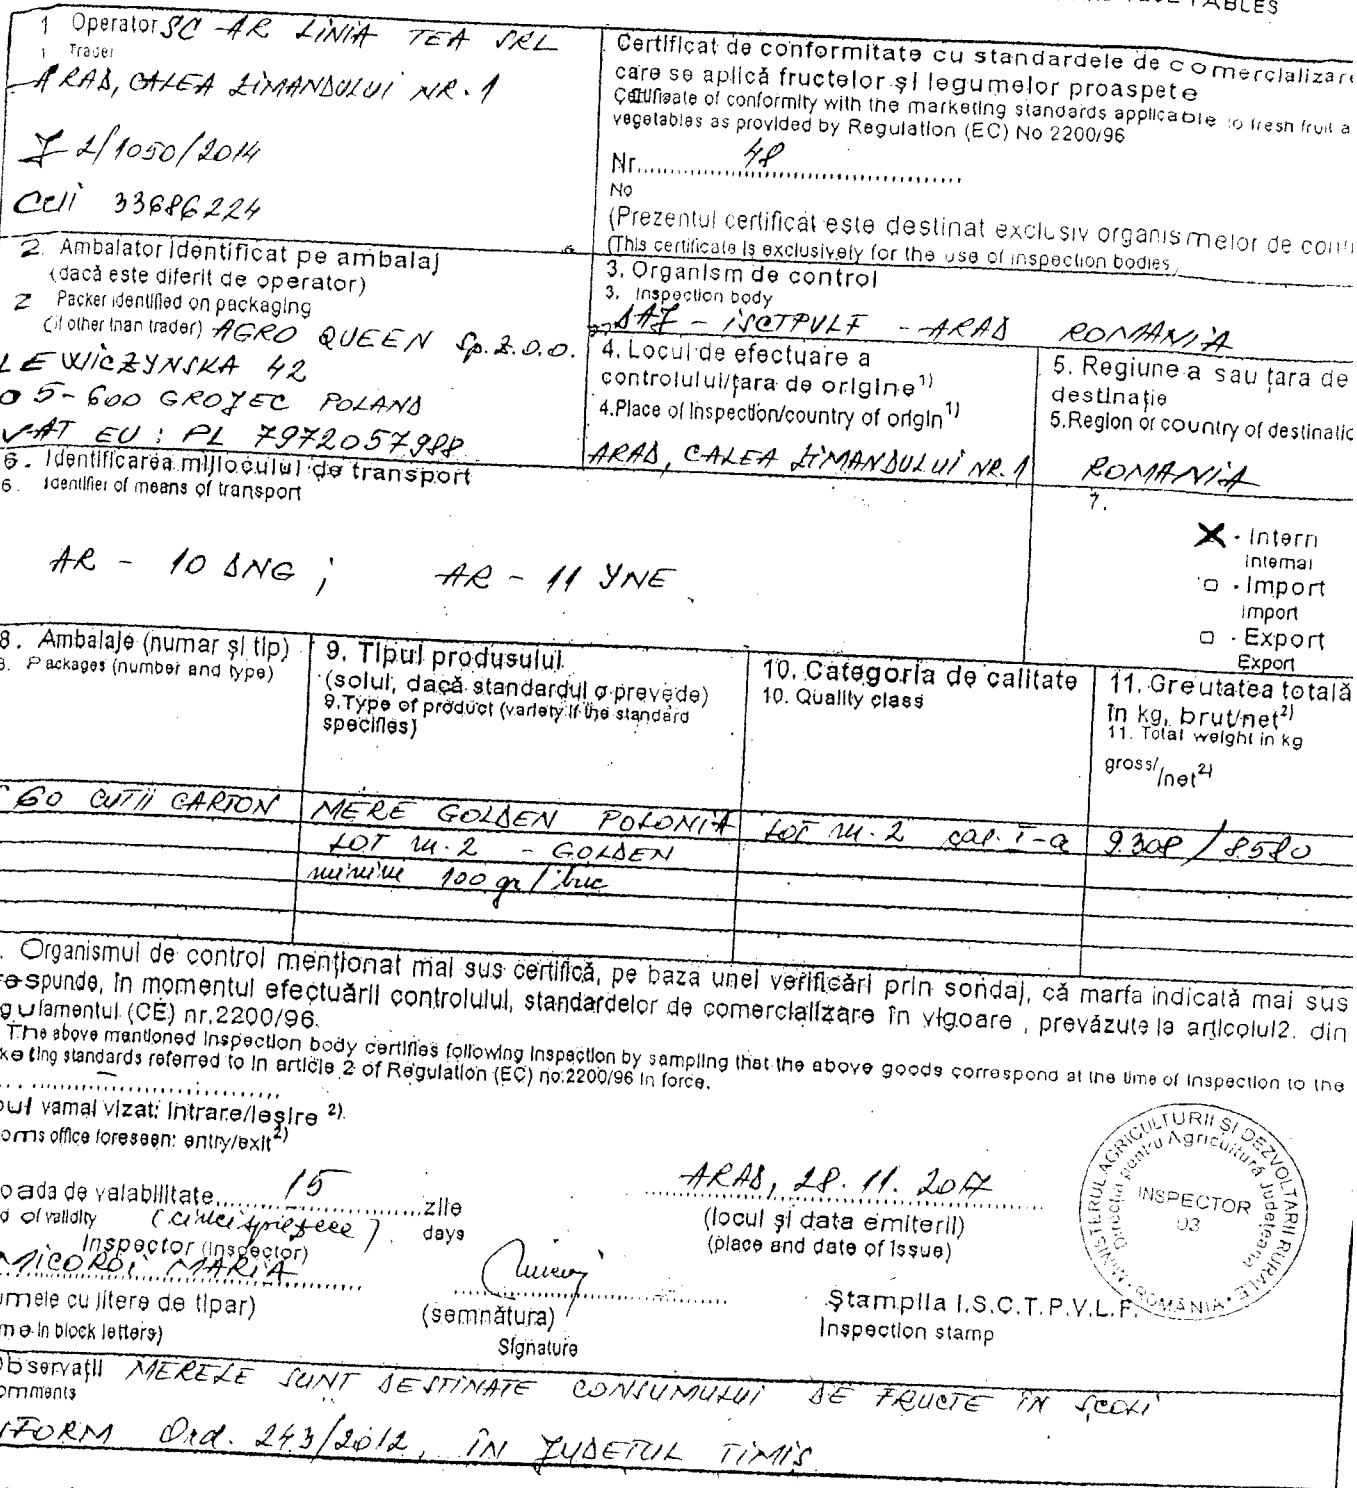 1 Operator SC AR LINIA TEA SRL
1 Trader
ARAD, CALEA ZIMANDULUI NR. 1
J 2/1050/2014
CUI 33686224
Certificat de conformitate cu standardele de comercializare
care se aplică fructelor și legumelor proaspete
Certificate of conformity with the marketing standards applicable to fresh fruit a
vegetables as provided by Regulation (EC) No 2200/96
Nr. 48
No
(Prezentul certificat este destinat exclusiv organismelor de con
(This certificate is exclusively for the use of inspection bodies)
2. Ambalator identificat pe ambalaj
(dacă este diferit de operator)
2 Packer identified on packaging
(if other than trader) AGRO QUEEN Sp. Z.O.O.
LEWICZYNSKA 42
05-600 GROJEC POLAND
VAT EU : PL 7972057988
3. Organism de control
3. Inspection body
DAJ - ISCTPVLF - ARAD ROMANIA
4. Locul de efectuare a
controlului/țara de origine 1)
4.Place of inspection/country of origin 1)
ARAD, CALEA ZIMANDULUI NR. 1
5. Regiunea sau țara de
destinație
5.Region or country of destinatio
ROMANIA
6. Identificarea mijlocului de transport
6. Identifier of means of transport
AR - 10 DNG ; AR - 11 YNE
7.
X - Intern
Internal
□ - Import
Import
□ - Export
Export
8. Ambalaje (numar și tip)
8. Packages (number and type)
9. Tipul produsului
(soiul, dacă standardul o prevede)
9.Type of product (variety if the standard
specifies)
10. Categoria de calitate
10. Quality class
11. Greutatea totală
în kg, brut/net 2)
11. Total weight in kg
gross/ /net 2)
60 CUTII CARTON MERE GOLDEN POLONIA LOT nr. 2 cal. I-a 9308 / 8580
LOT nr. 2 - GOLDEN
minim 100 gr / buc
. Organismul de control menționat mai sus certifică, pe baza unei verificări prin sondaj, că marfa indicată mai sus
respunde, în momentul efectuării controlului, standardelor de comercializare în vigoare , prevăzute la articolul2. din
gulamentul (CE) nr.2200/96.
The above mentioned inspection body certifies following inspection by sampling that the above goods correspond at the time of inspection to the
keting standards referred to in article 2 of Regulation (EC) no.2200/96 in force.
oul vamal vizat: intrare/ieșire 2)
oms office foreseen: entry/exit 2)
oada de valabilitate 15 zile
d of validity (cincisprezece) days
Inspector (inspector)
MICOROI MARIA
umele cu litere de tipar)
me in block letters)
(semnătura)
Signature
ARAD, 28. 11. 2017
(locul și data emiterii)
(place and date of issue)
Ștampila I.S.C.T.P.V.L.F.
Inspection stamp
MINISTERUL AGRICULTURII ȘI DEZVOLTĂRII RURALE
Direcția pentru Agricultură Județeană
INSPECTOR
03
ROMÂNIA
Observații MERELE SUNT DESTINATE CONSUMULUI DE FRUCTE ÎN ȘCOLI
omments
NFORM Ord. 243/2012, ÎN JUDETUL TIMIȘ